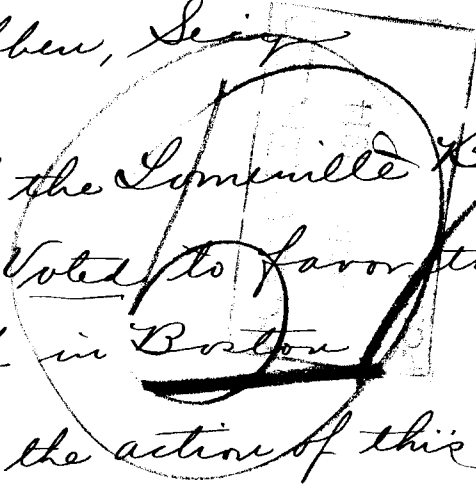 the Somerville
Voted to favor
in Boston
the action of this